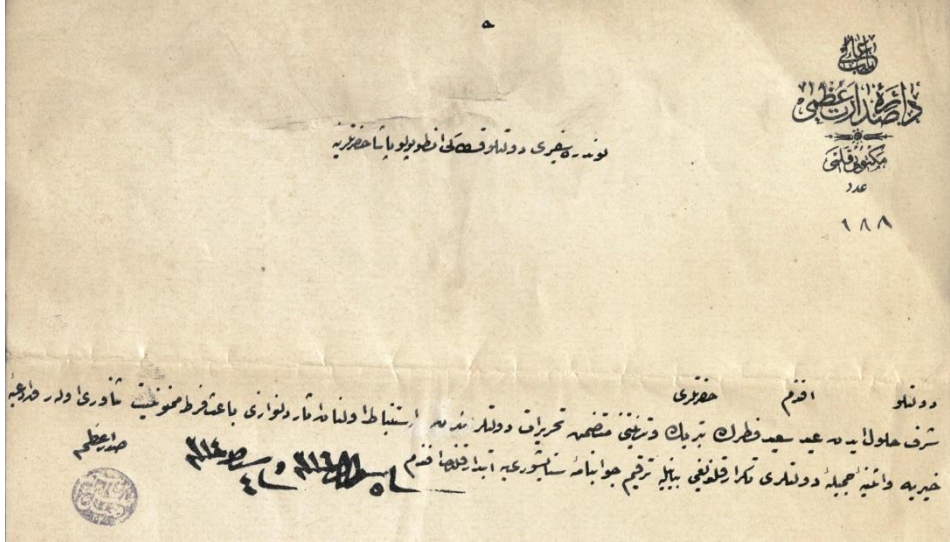 باب عالی
دائره صدارت عظمی
مكتوبی قلمی
عدد
٩٨٨
لوندره سفیری دولتلو قوستاكی انطوپولو پاشا حضرتلرینه
دولتلو افندم حضرتلری
شرف حلول ایدن عید سعید فطرك تبریك و تهنئتنی متضمن تحریرات دولتلرندن استنباط اولنان اثار دلنوازی باعث فرط ممنونیت ثناوری اوله رق ادعیهٔ
خیریه و اثنیهٔ جمیلهٔ دولتلری تكرار قلندیغی بیانیله ترقیم جوابنامهٔ ثناوری یه ابتدار قلندی افندم
صدر اعظم